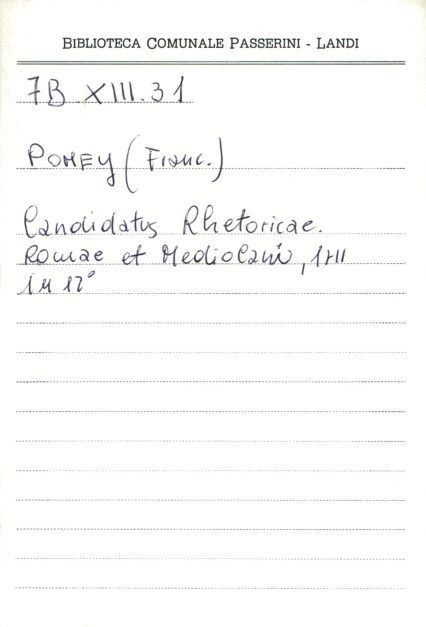 BIBLIOTECA COMUNALE PASSERINI - LANDI
7B XIII.31
POMEY (Franc.)
Candidatus Rhetoricae.
Romae et Mediolani, 1711
in 12°